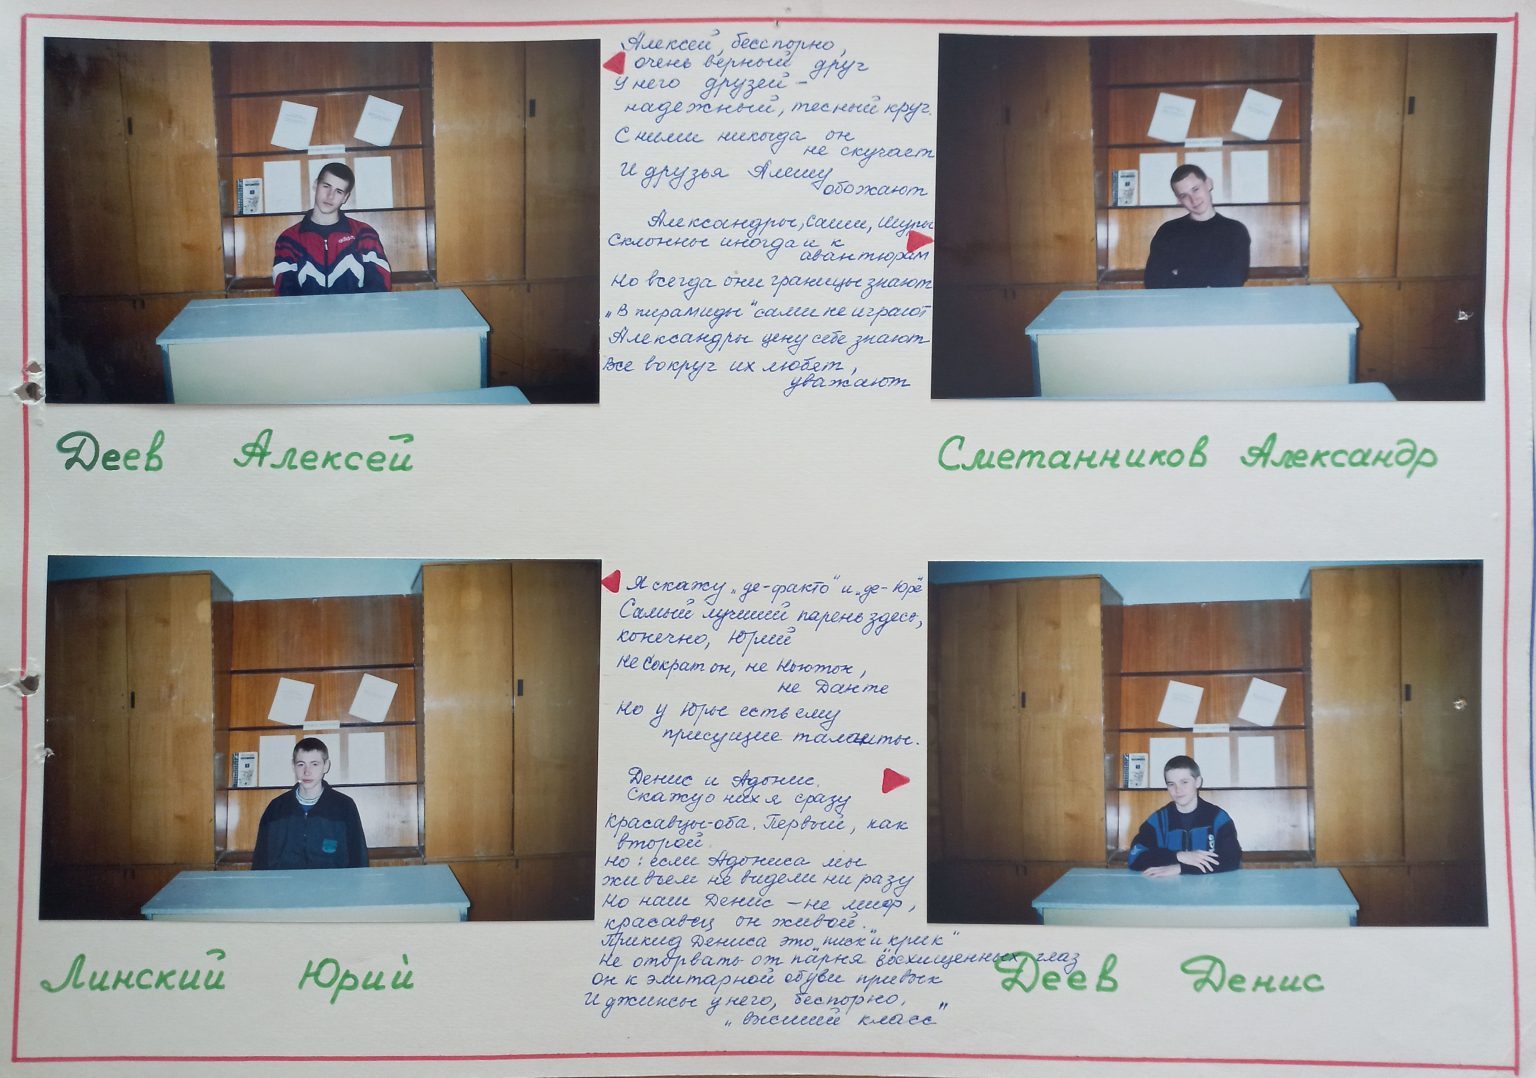 Алексей, бесспорно,
очень верный друг
У него друзей –
надежный, тесный круг.
С ними никогда он
не скучает
И друзья Алешу
обожают
Александры, Саши, Шуры
Склонны иногда и к
авантюрам
Но всегда они границы знают
„В пирамиды" сами не играют
Александры цену себе знают
Все вокруг их любят,
уважают
Деев Алексей
Сметанников Александр
Я скажу „де-факто" и „де-юре"
Самый лучший парень здесь,
конечно, Юрий
Не Сократ он, не Ньютон,
не Данте
Но у Юры есть ему
присущие таланты.
Денис и Адонис.
Скажу о них я сразу
красавцы-оба. Первый, как
второй.
Но: если Адониса мы
живьем не видели ни разу
Но наш Денис – не миф,
красавец он живой.
Прикид Дениса это „писк" и „крик"
Не оторвать от парня восхищенных глаз
Он к элитарной обуви привык
И джинсы у него, беспорно,
„высший класс"
Линский Юрий
Деев Денис